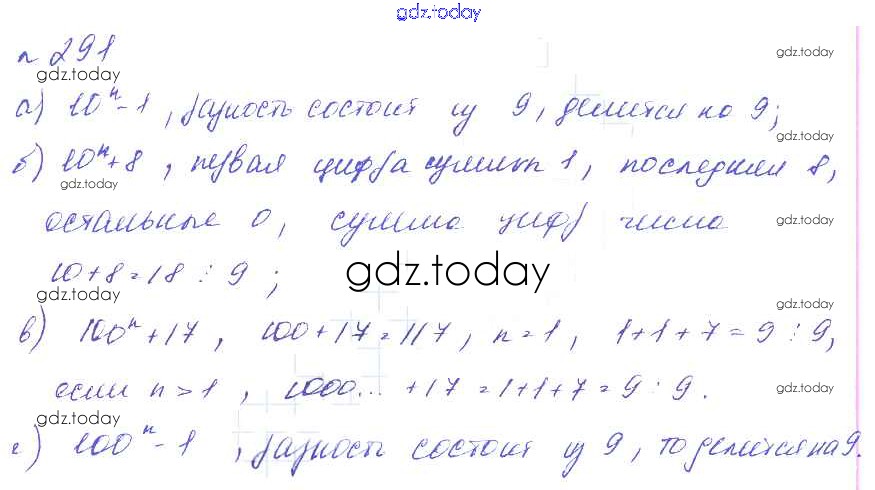 gdz.today
n 291
gdz.today
gdz.today
а) 10ⁿ-1, разность состоит из 9, делится на 9;
gdz.today
б) 10ⁿ+8, первая цифра суммы 1, последняя 8,
gdz.today
остальные 0, сумма цифр числа
gdz.today
10+8=18 ⋮ 9;
gdz.today
gdz.today
gdz.today
в) 100ⁿ+17, 100+17=117, n=1, 1+1+7=9 ⋮ 9,
если n>1, 1000... +17=1+1+7=9 ⋮ 9.
gdz.today
gdz.today
г) 100ⁿ-1, разность состоит из 9, то делится на 9.